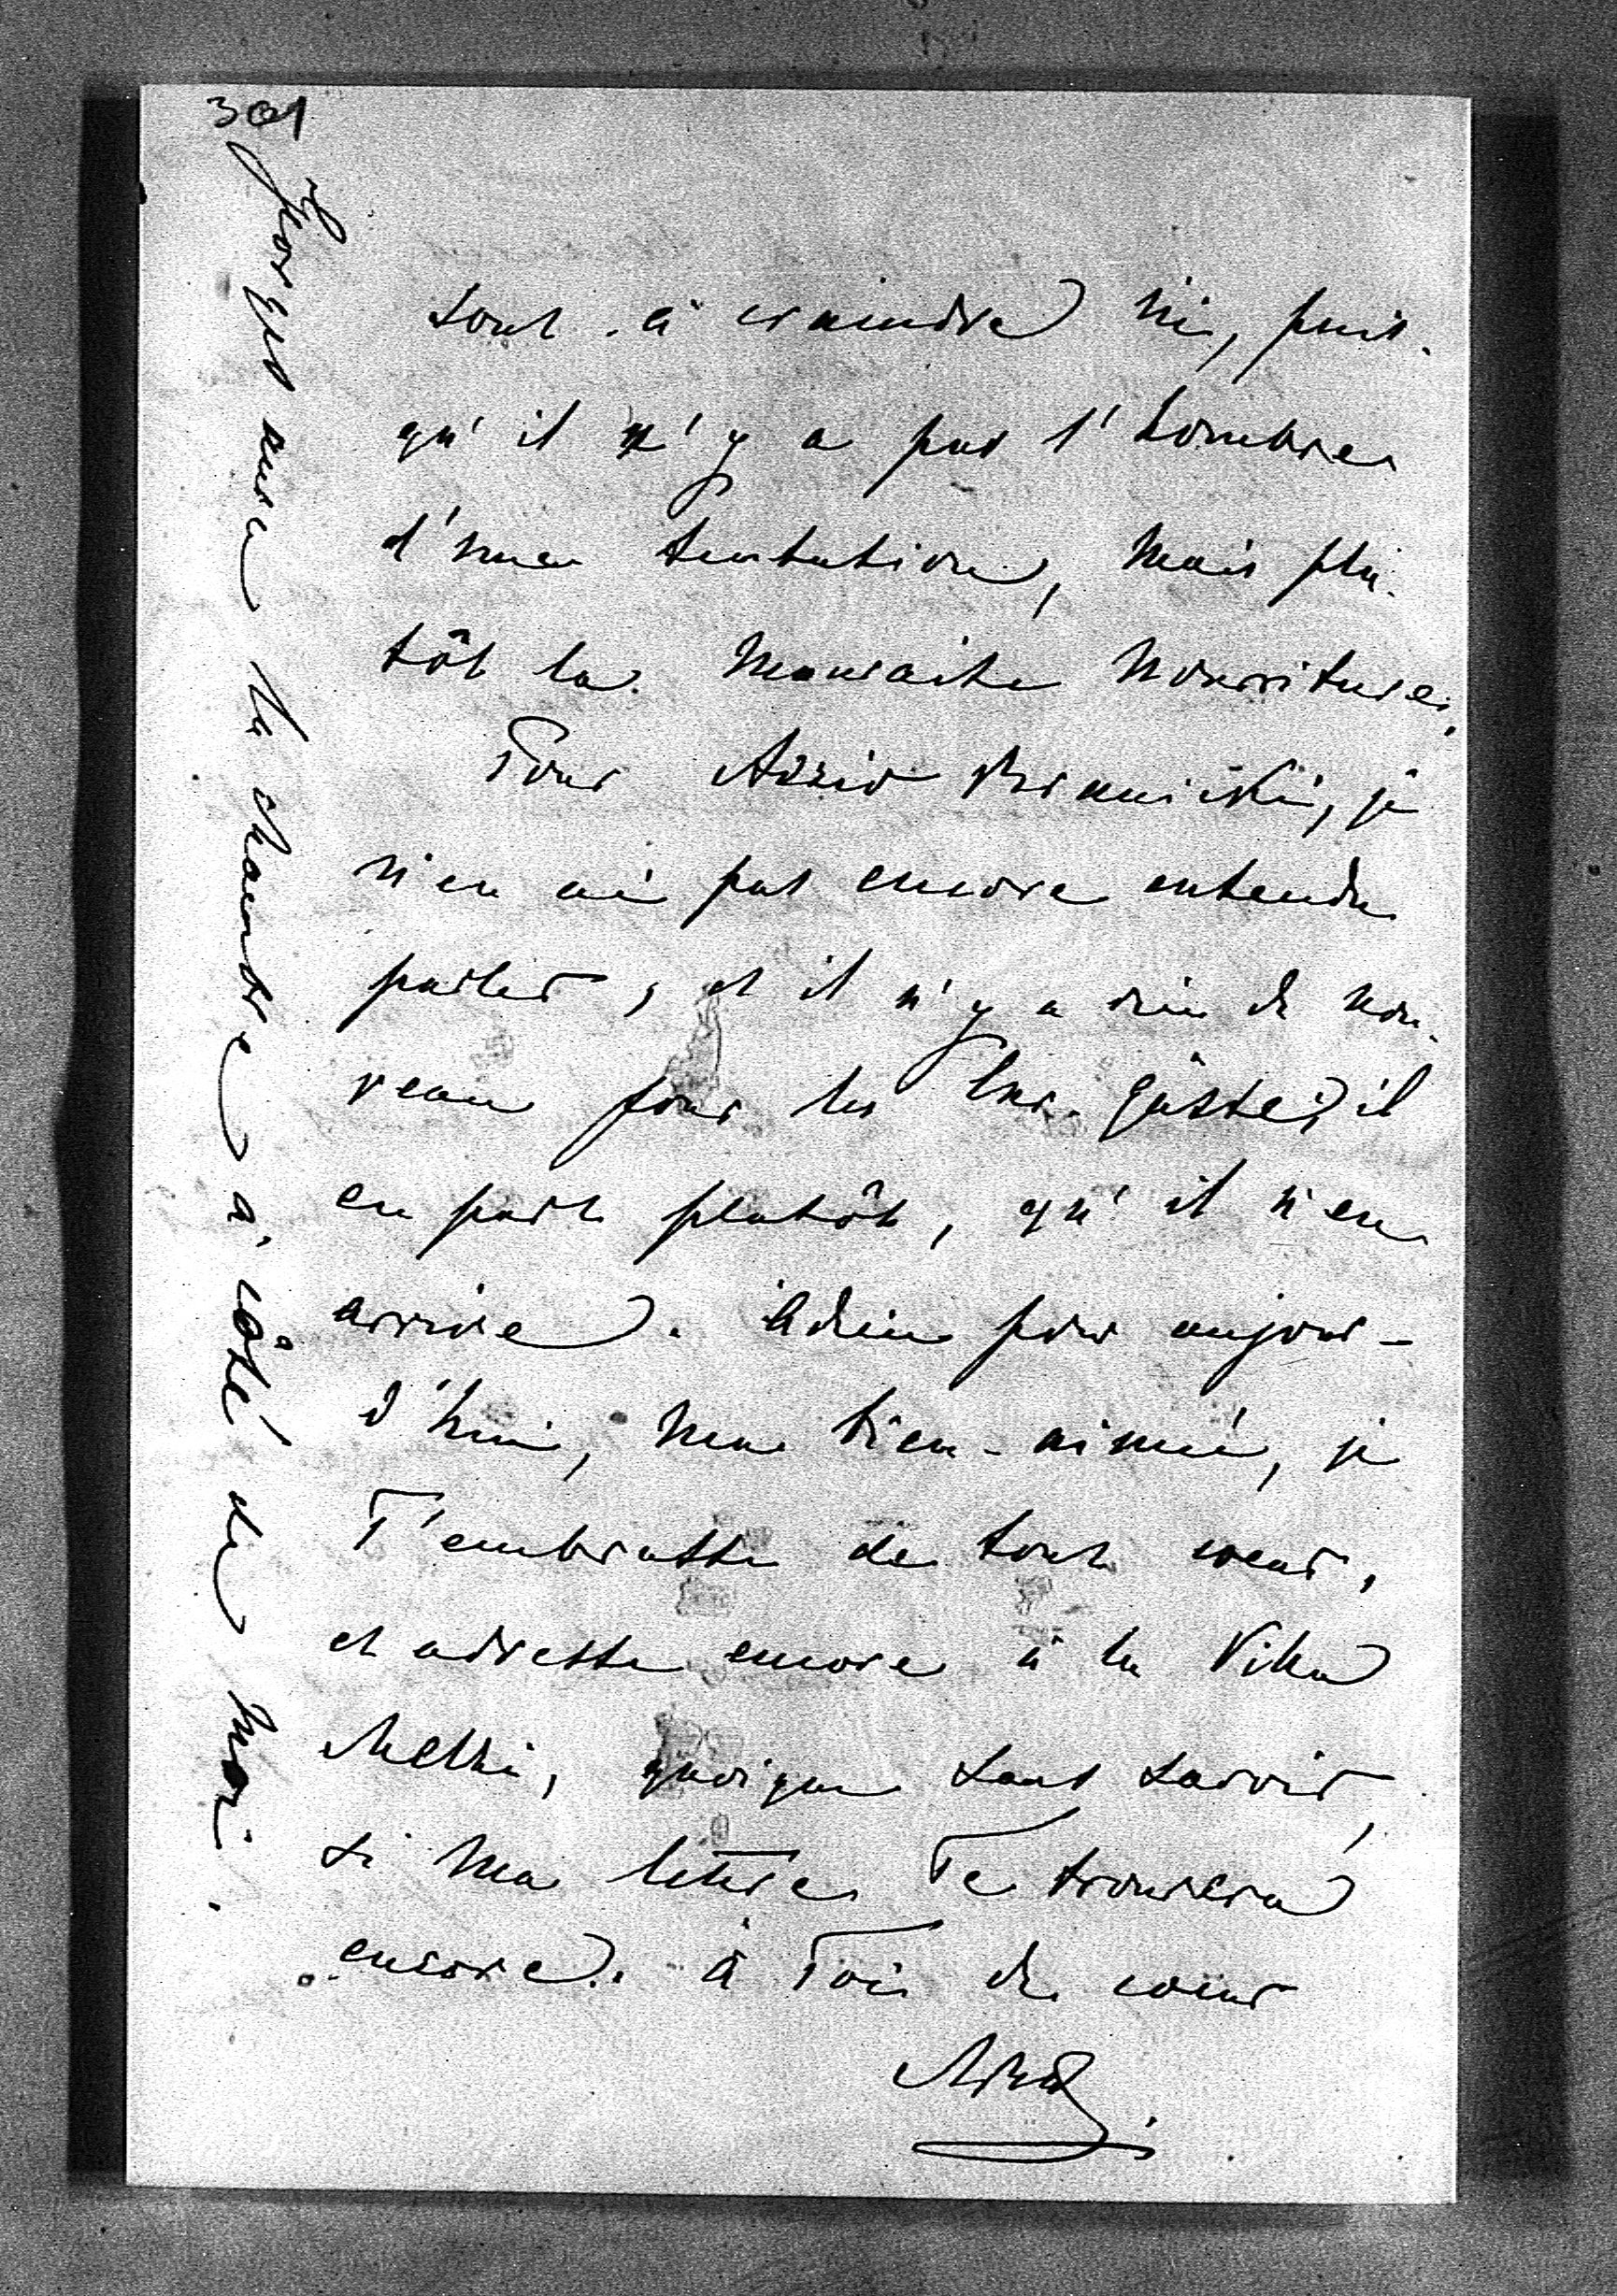 301
sont à craindre ici, puis-
qu'il n'y a pas l'sombre
d'une tentation, mais plu-
tôt la mauvaise nourriture.
Pour Branicki, je
n'en ai pas encore entendu
parler, et il n'y a rien de nou-
veau pour les Cur-gäste, il
en part plutôt, qu'il n'en
arrive. Adieu pour aujour-
d'hui, mon bien-aimé, je
T'embrasse de tout coeur,
et adresse encore à la Villa
quoique sans savoir,
si ma lettre Te trouvera
encore. à Toi de coeur
Georges aura la chambre à côté de moi.